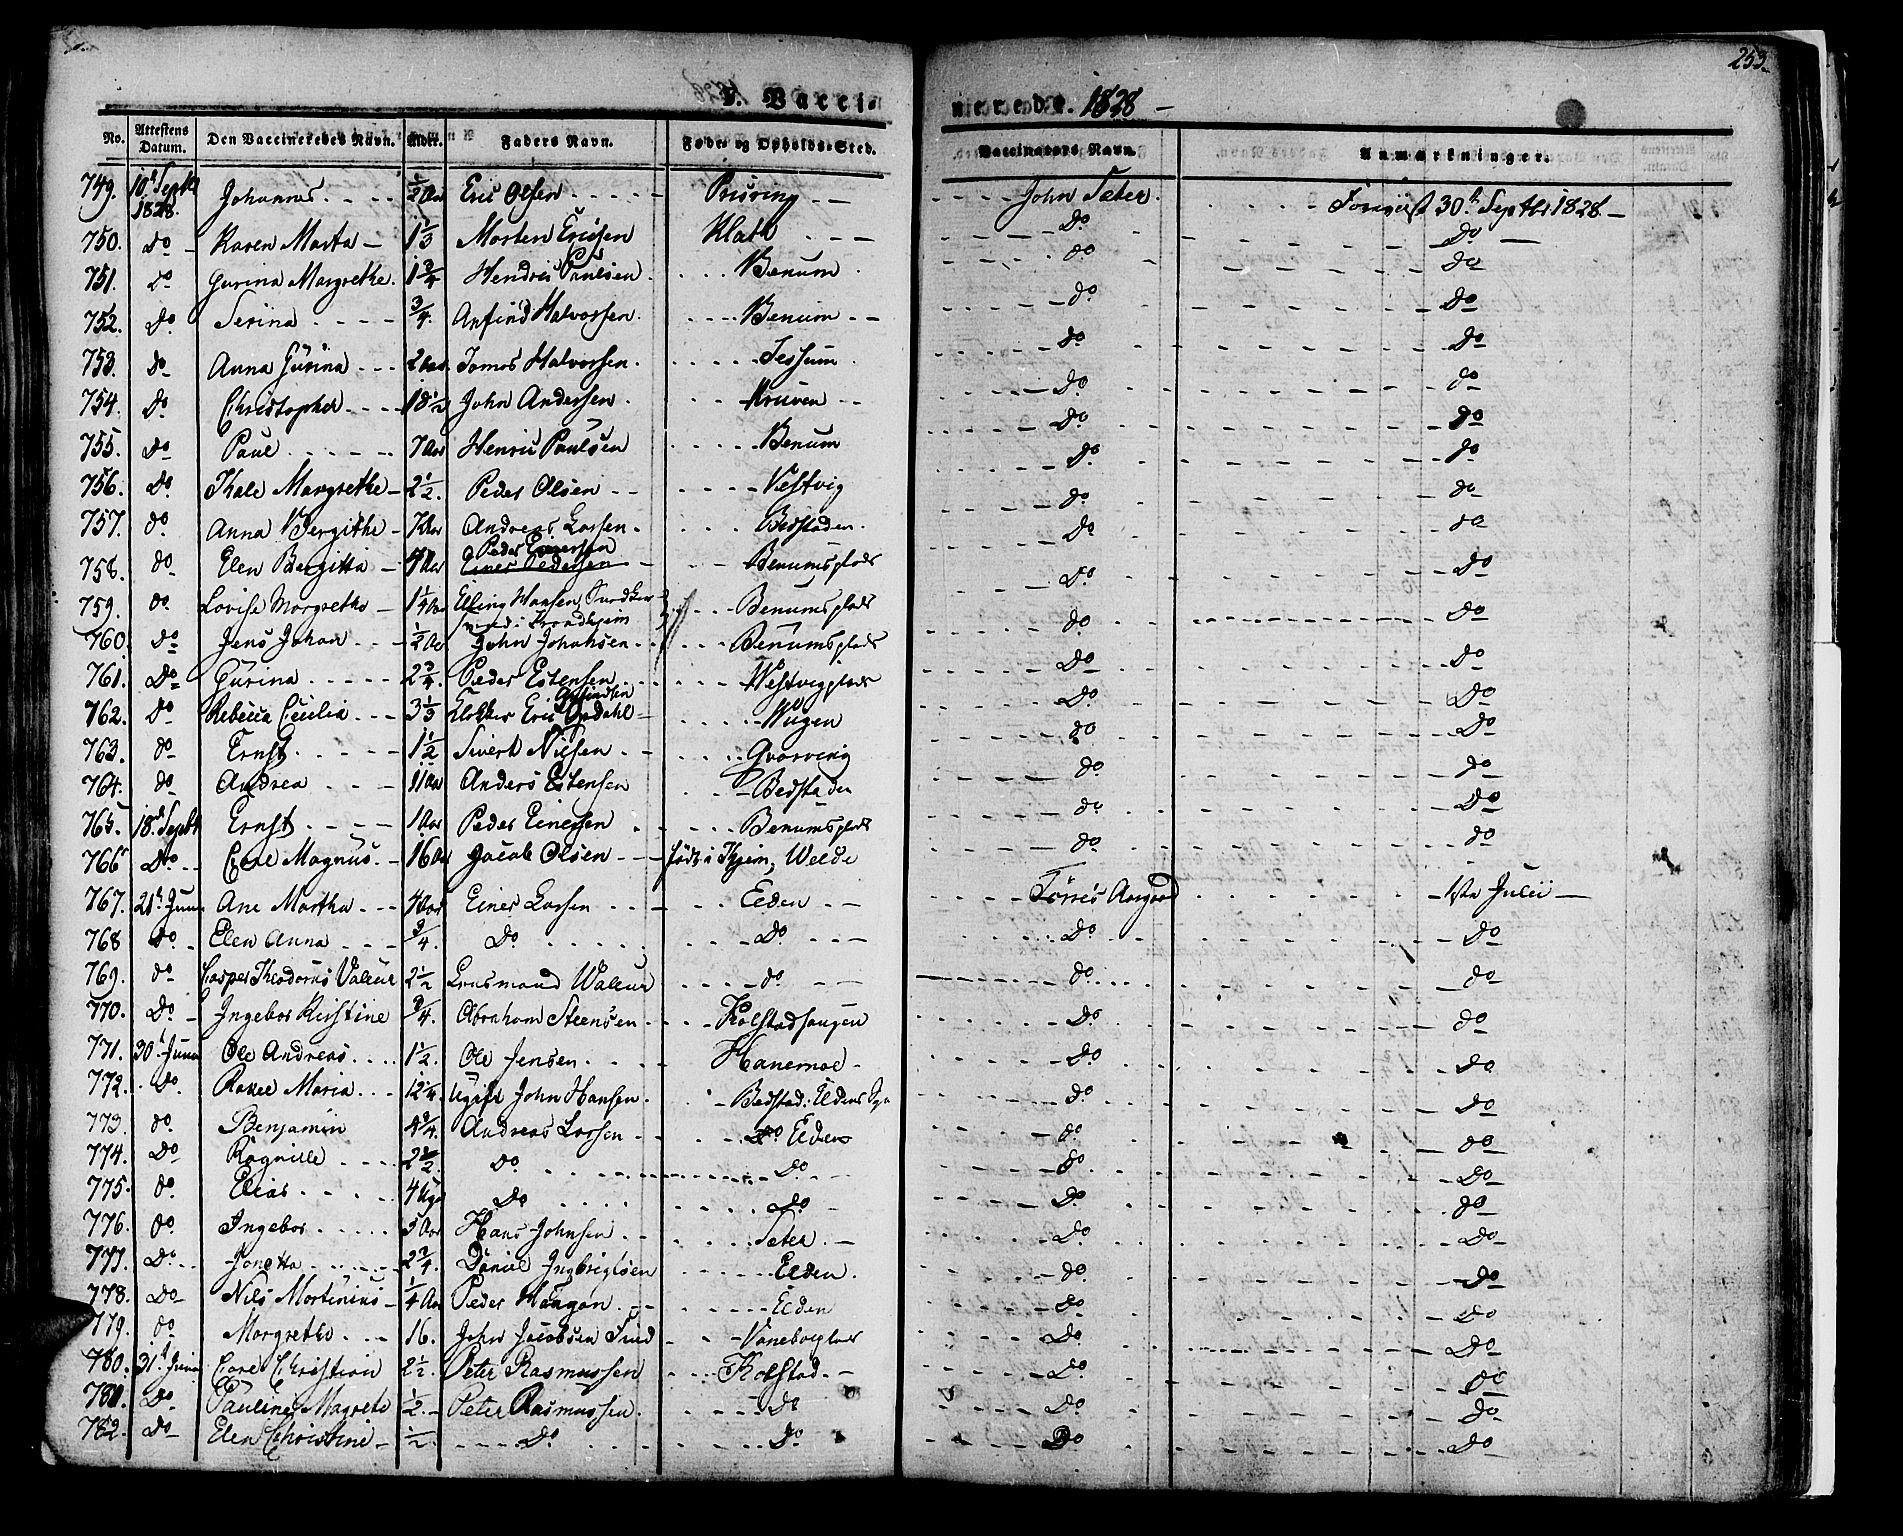 253.
V. Vaccinerede. 1828 –
No. Attestens Datum. Den Vaccineredes Navn. Alder. Faders Navn. Føde- og Opholds-Sted. Vaccinators Navn. Anmærkninger.
749. 10de Septbr 1828. Johannes 1/2 Aar Eric Olsen John Sæter 30te Septbr 1828 –
750. Do – Karen Marta – 1 1/3 Morten Ericsen Klath Do Do –
751. Do Gurina Margrethe. 1 3/4 Hendric Paulsen Benum do do
752. Do. Serina 3/4. Arfind Halvorsen. Benum do Do
753. do Anna Gurina 2 Aar Tomas Halvorsen. Jessum do Do
754. Do. Christopher 18 1/2 John Andersen Kruven do do
755. Do Paul 7 Aar Henric Paulsen Benum Do do
756. Do. Margrethe – 2 1/2. Peder Olsen Vestvig Do. do
757. do. Anna Bergithe – Andreas Larsen. Bedstaden. do do
758. do Elen Bergitta – Peder Einersen Einer Pedersen Benumsplads Do do
759. do. Lovise Margrethe 1 1/4 Aar Elling Hansen, Benumsplads Do Do
760. Do Jens Johan 1/2 Aar John Johansen Benumsplads do do
761. Do Gurina 2 3/4. Peder Estensen Vestvigplads Do Do
762. Do Rebecca Cecilia 3 1/3 Klokker Eric Arfindsen Opdahl – Wùgen Do Do
763. do Ernst 1 1/2 Sivert Nilsen do Do
764. do Andrea 11 Aar Anders Estensen Bedstaden do do
765. 18de Septbr Ernst 1 Aar Peder Einersen Benumsplads do Do
766 Do Carl Magnus. 16 Aar Jacob Olsen født i Welde do do
767. 21de Juni Ane Martha 4 Aar Einer Larsen Elden Tørris Aargaard 1ste Julii –
768 Do. Elen Anna 3/4. Do Do Do Do
769. do Casper Theodorus Valeur 2 1/2 Waleur do do do
770. Do Ingebor Kirstine 3/4. Abraham Steensen Kolstadhaugen Do do
771. 30te Juni Ole Andreas. 1 1/2. Ole Jensen. Hanemoe Do Do
772. Do. Rakel Maria 12 1/4. John Hansen. Bedstad: Eldens do Do
773. do. Benjamin 3/4. Andreas Larsen Do Elden do do
774. Do Ragnille 2 1/2. Do Do do Do
775. do. Elias Do Do Do do
776. do Ingebor 5 Aar Hans Johnsen Sæter Do Do
777. Do. Jonetta 2 3/4. Daniel Ingbrigtsen Elden. do Do
778. Do Nils Mortinius – 1/4 Aar Peder Haagan Elden Do Do
779. do Margrethe 16. John Jacobsen Vaneboeplads Do Do
780. 31te Juni Carl Christian 2 1/2. Peter Rasmussen Kolstad Do Do
781. Do. Pauline Magrete 1/2. Peter Rasmussen. Do Do Do
782. Do Elen Christine – 1/2. Do. Do Do Do